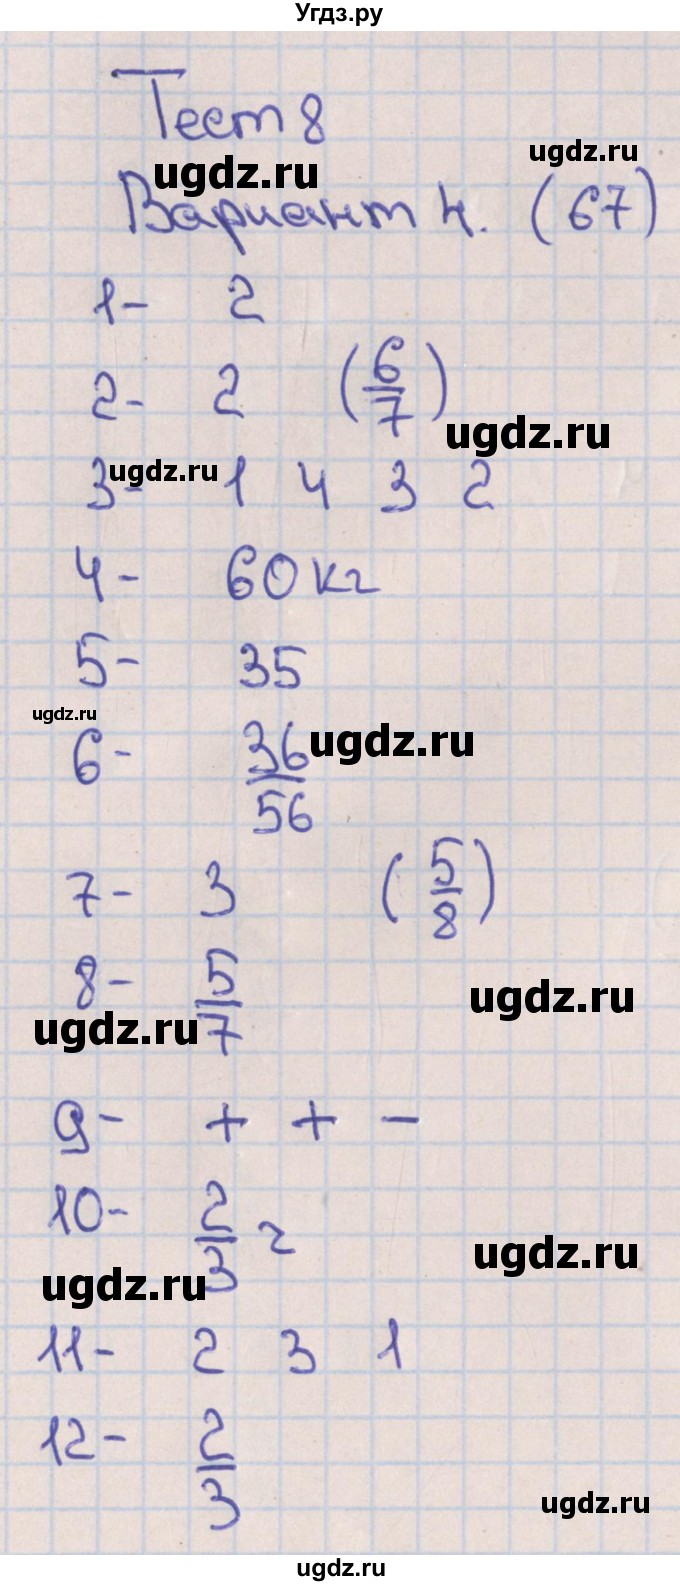 Угдз.ру
Тест 8
ugdz.ru
ugdz.ru
Вариант 4. (67)
1- 2
2- 2 (6/7)
ugdz.ru
ugdz.ru
3- 1 4 3 2
4- 60 кг
5- 35
ugdz.ru
ugdz.ru
6- 36/56
7- 3 (5/8)
8- 5/7
ugdz.ru
ugdz.ru
9- + + -
10- 2/3 г
ugdz.ru
ugdz.ru
11- 2 3 1
12- 2/3
ugdz.ru
ugdz.ru